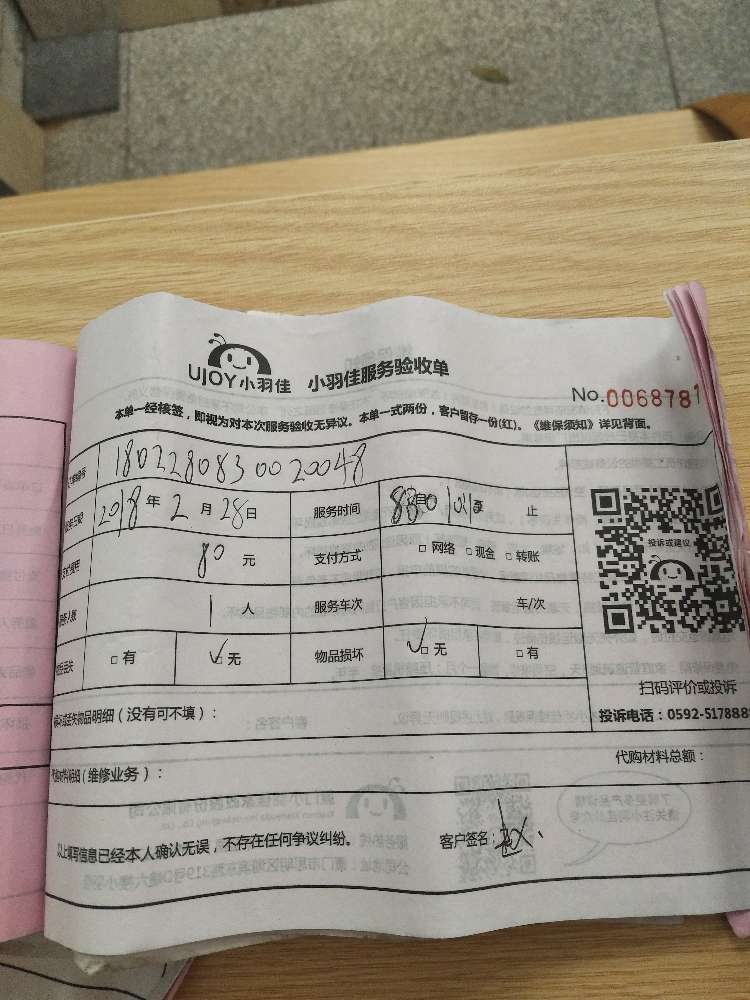 UJOY小羽佳 小羽佳服务验收单
No.0068781
本单一经核签，即视为对本次服务验收无异议。本单一式两份，客户暂存一份(红)。《维保须知》详见背面。
180228083002 0048
2018年2月28日 服务时间 止
80元 支付方式 □网络 □现金 □转账
1人 服务车次 车/次
□有 ☑无 物品损坏 ☑无 □有
投诉或建议
扫码评价或投诉
投诉电话：0592-517888
丢失物品明细（没有可不填）：
材料明细（维修业务）： 代购材料总额：
以上填写信息已经本人确认无误，不存在任何争议纠纷。 客户签名：赵